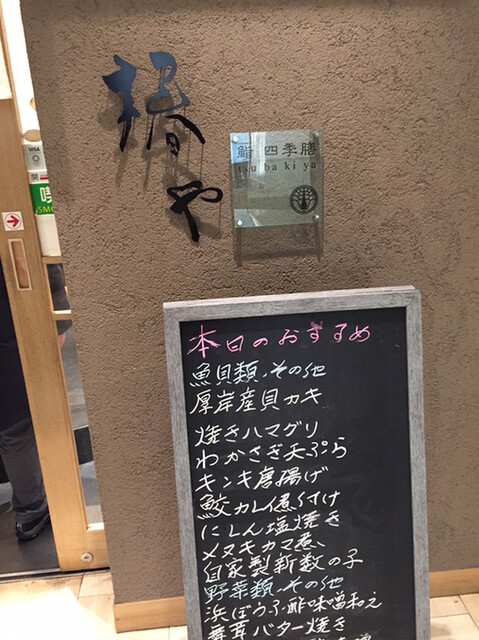 椿や
鮨 四季膳
tsubakiya
VISA
本日のおすすめ
魚貝類・その他
厚岸産貝カキ
焼きハマグリ
わかさぎ天ぷら
キンキ唐揚げ
鮫カレイ煮付け
にしん塩焼き
メヌキカマ煮
自家製新数の子
野菜類・その他
浜ぼうふ酢味噌和え
舞茸バター焼き